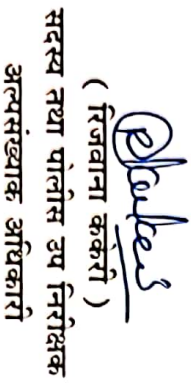 ( रिजवाना ककेरी )
सदस्य तथा पोलीस उप निरीक्षक
अल्पसंख्याक अधिकारी